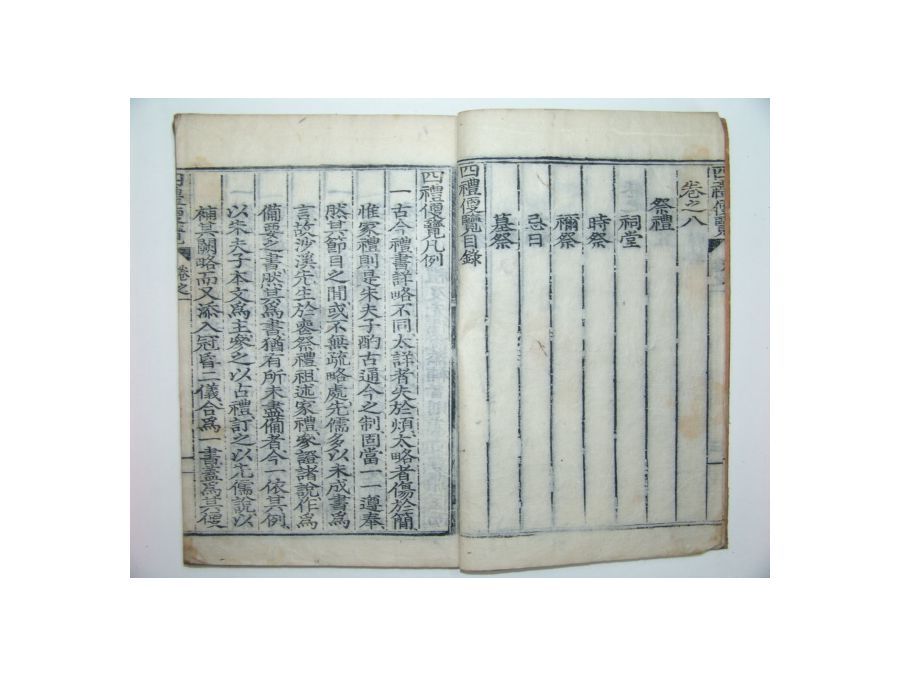 四禮便覽
卷之八
祭禮
祠堂
時祭
禰祭
忌日
墓祭
四禮便覽目錄
四禮便覽凡例
一 古今禮書詳略不同太詳者失於煩太略者傷於簡
惟家禮則是朱夫子酌古通今之制固當一一遵奉
然其節目之間或不無疏略處先儒多以未成書爲
言故沙溪先生於喪祭禮祖述家禮參證諸說作爲
備要之書然其爲書猶有所未盡備者今一依其例
以朱夫子本文爲主參之以古禮訂之以先儒說以
補其闕略而又添入冠昏二儀合爲一書蓋爲其便
四禮便覽
卷之